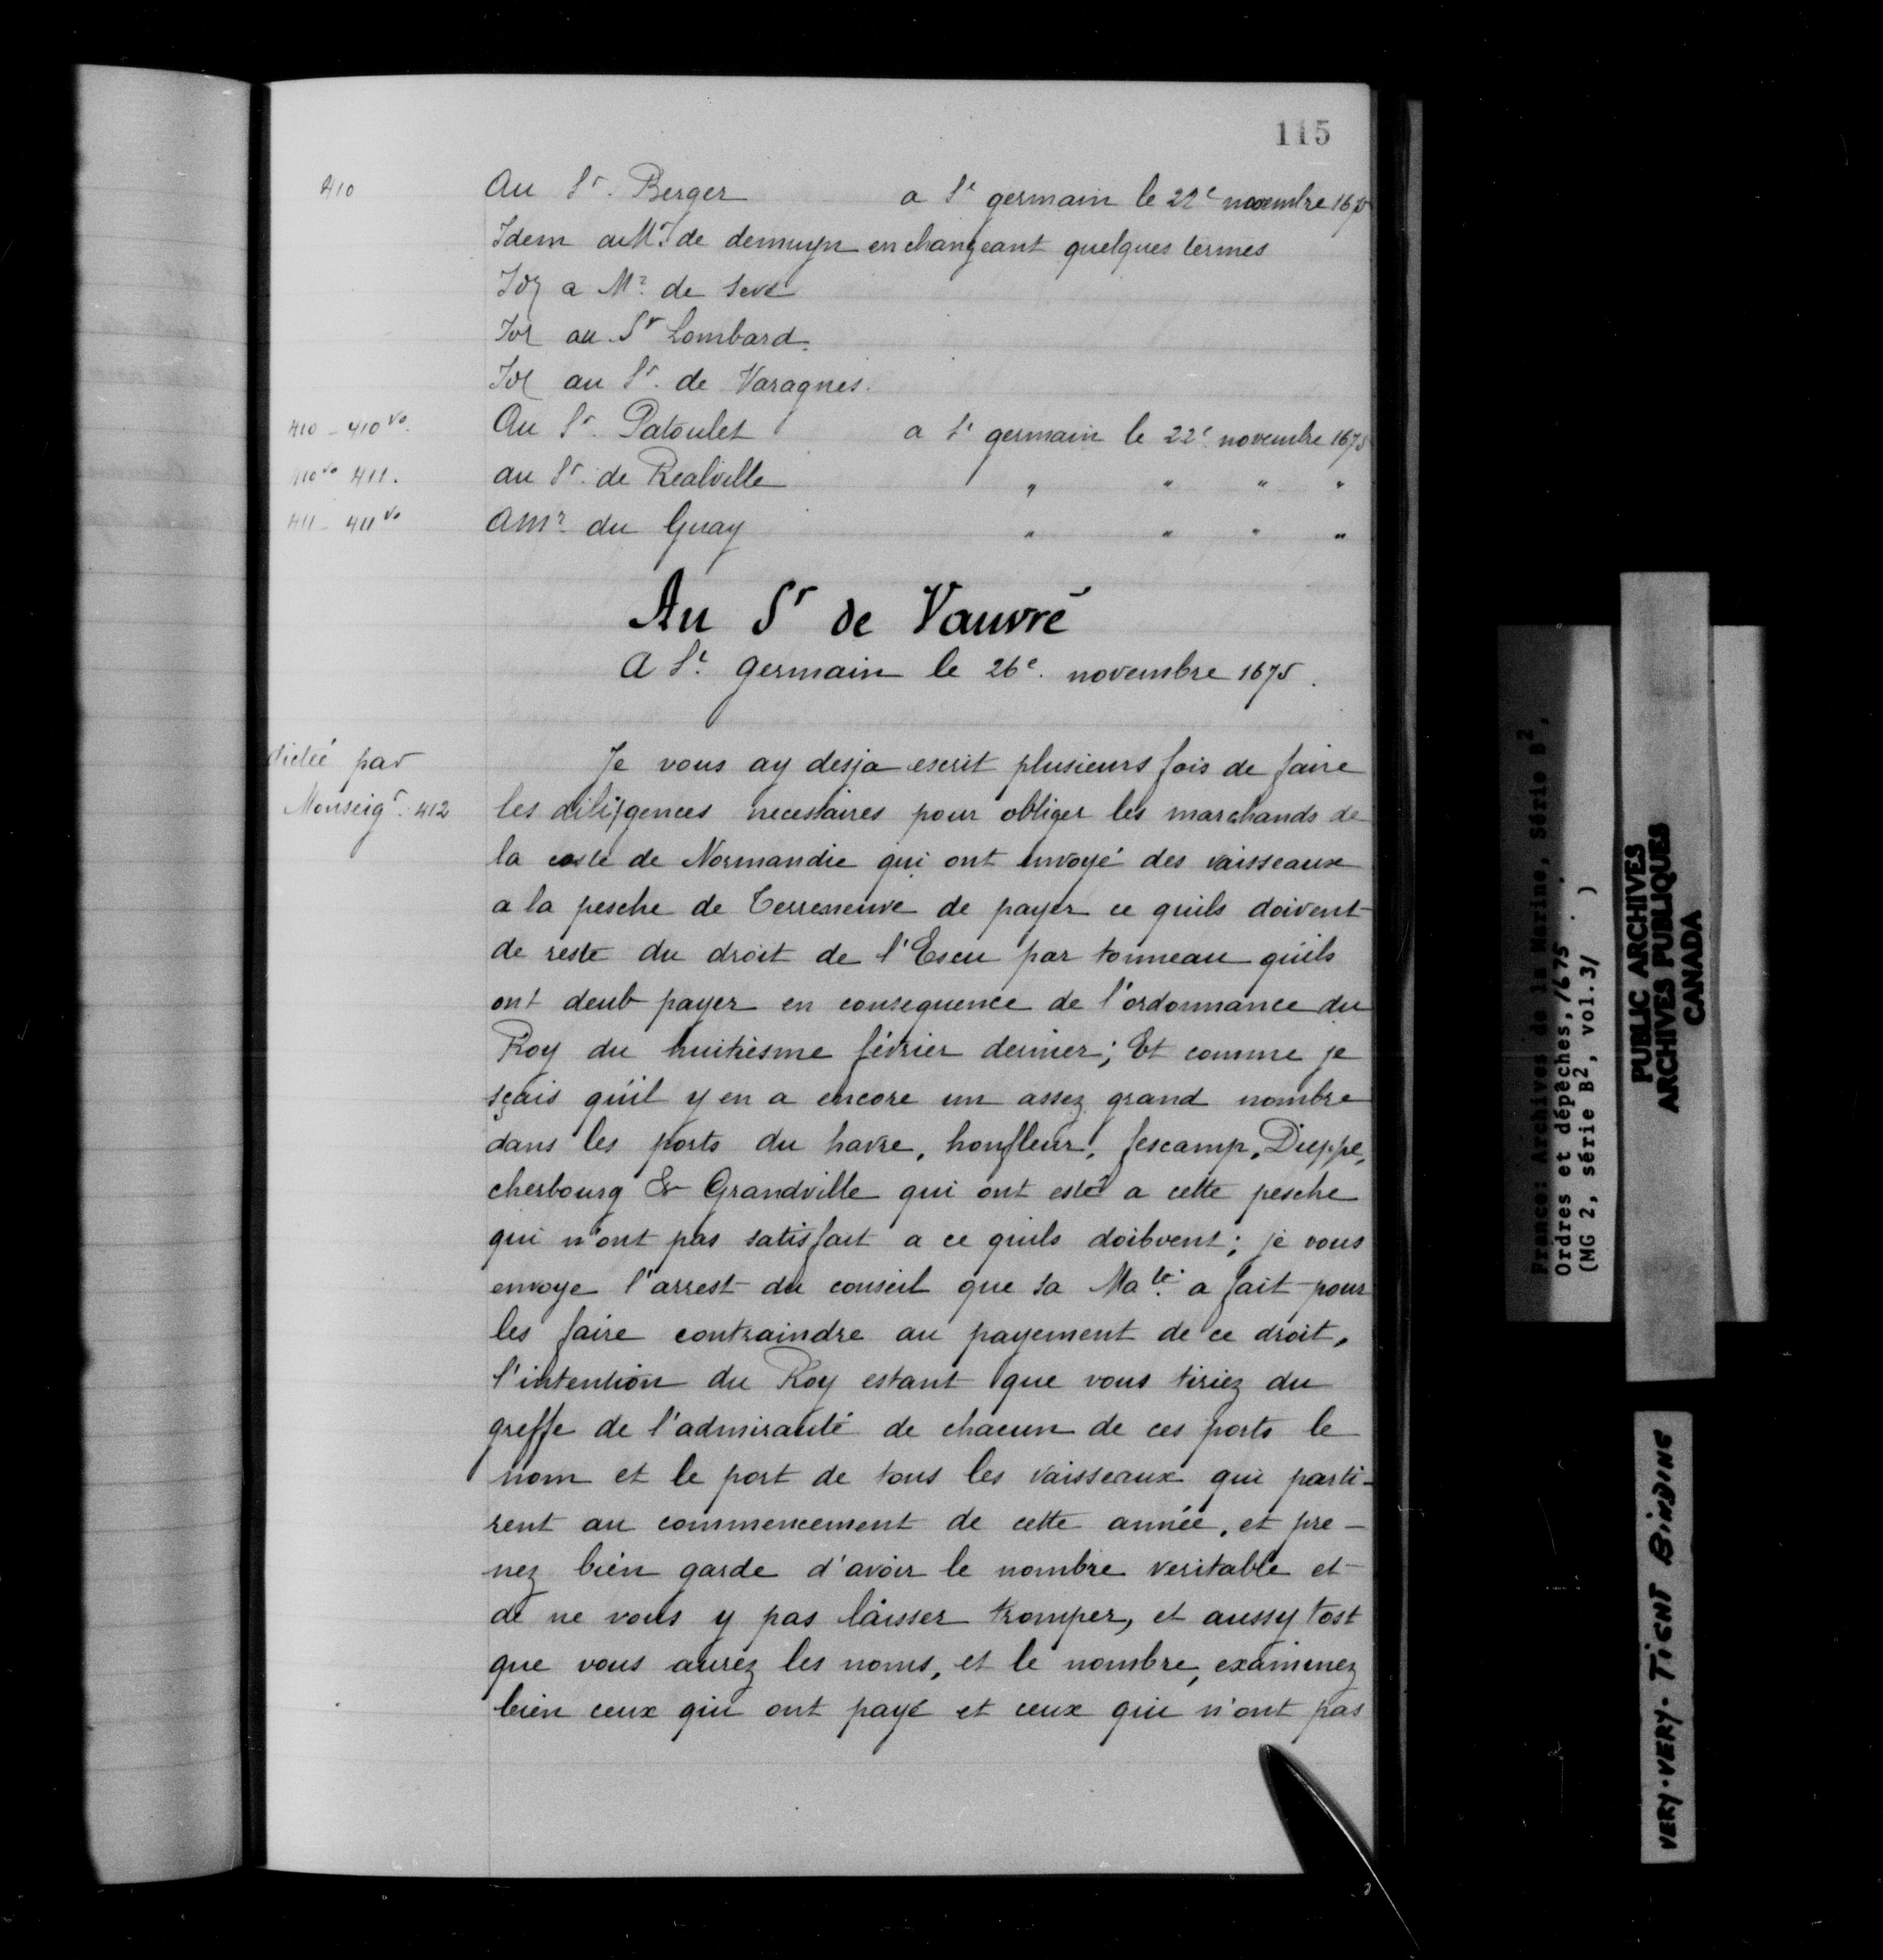 115
410 Au Sr. Berger a St germain le 22e novembre 1675
Idem a Mr. de demuyn en changeant quelques termes
Id a Mr. de seve
Id au Sr Lombard.
Id au Sr. de Varagnes.
410 - 410 vo. Au Sr. Patoulet a St germain le 22e novembre 1675
410 vo 411. au Sr. de Realville " " " "
411 - 411 vo A mr. du Guay " " " "
Au Sr de Vauvré
A St. germain le 26e. novembre 1675.
dictée par
Monseigr. 412
Je vous ay desja escrit plusieurs fois de faire
les diligences necessaires pour obliger les marchands de
la coste de Normandie qui ont envoyé des vaisseaux
a la pesche de Terreneuve de payer ce quils doivent
de reste du droit de l'Escu par tonneau qu'ils
ont deub payer en consequence de l'ordonnance du
Roy du huitiesme février dernier; Et comme je
sçais qu'il y en a encore un assez grand nombre
dans les ports du havre, honfleur, fescamp, Dieppe,
cherbourg & Grandville qui ont esté a cette pesche
qui n'ont pas satisfait a ce quils doibvent; je vous
envoye l'arrest du conseil que sa Mate. a fait pour
les faire contraindre au payement de ce droit,
l'intention du Roy estant que vous tiriez du
greffe de l'admirauté de chacun de ces ports le
nom et le port de tous les vaisseaux qui parti-
rent au commencement de cette année, et pre-
nez bien garde d'avoir le nombre veritable et
de ne vous y pas laisser tromper, et aussy tost
que vous aurez les noms, et le nombre, examinez
bien ceux qui ont payé et ceux qui n'ont pas
France: Archives de la Marine, Série B2,
Ordres et dépêches, 1675.
(MG 2, série B2, vol.31 . . )
PUBLIC ARCHIVES
ARCHIVES PUBLIQUES
CANADA
VERY-VERY-TIGHT BINDING